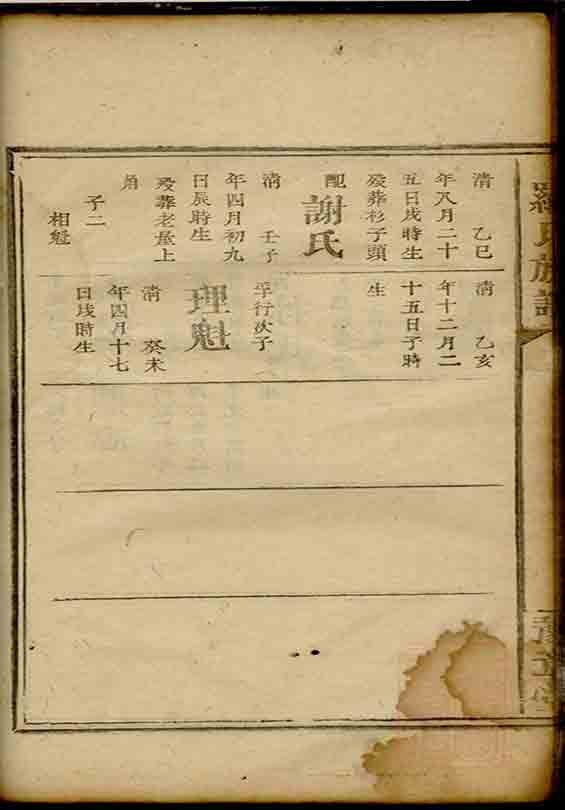 羅氏族譜
清 乙巳
年八月二十
五日戌時生
歿葬杉子頭
配
謝氏
清 壬子
年四月初九
日辰時生
歿葬老屋上
角
子二
相魁
清 乙亥
年十二月二
十五日子時
生
孚行次子
理魁
清 癸未
年四月十七
日戌時生
豫章堂